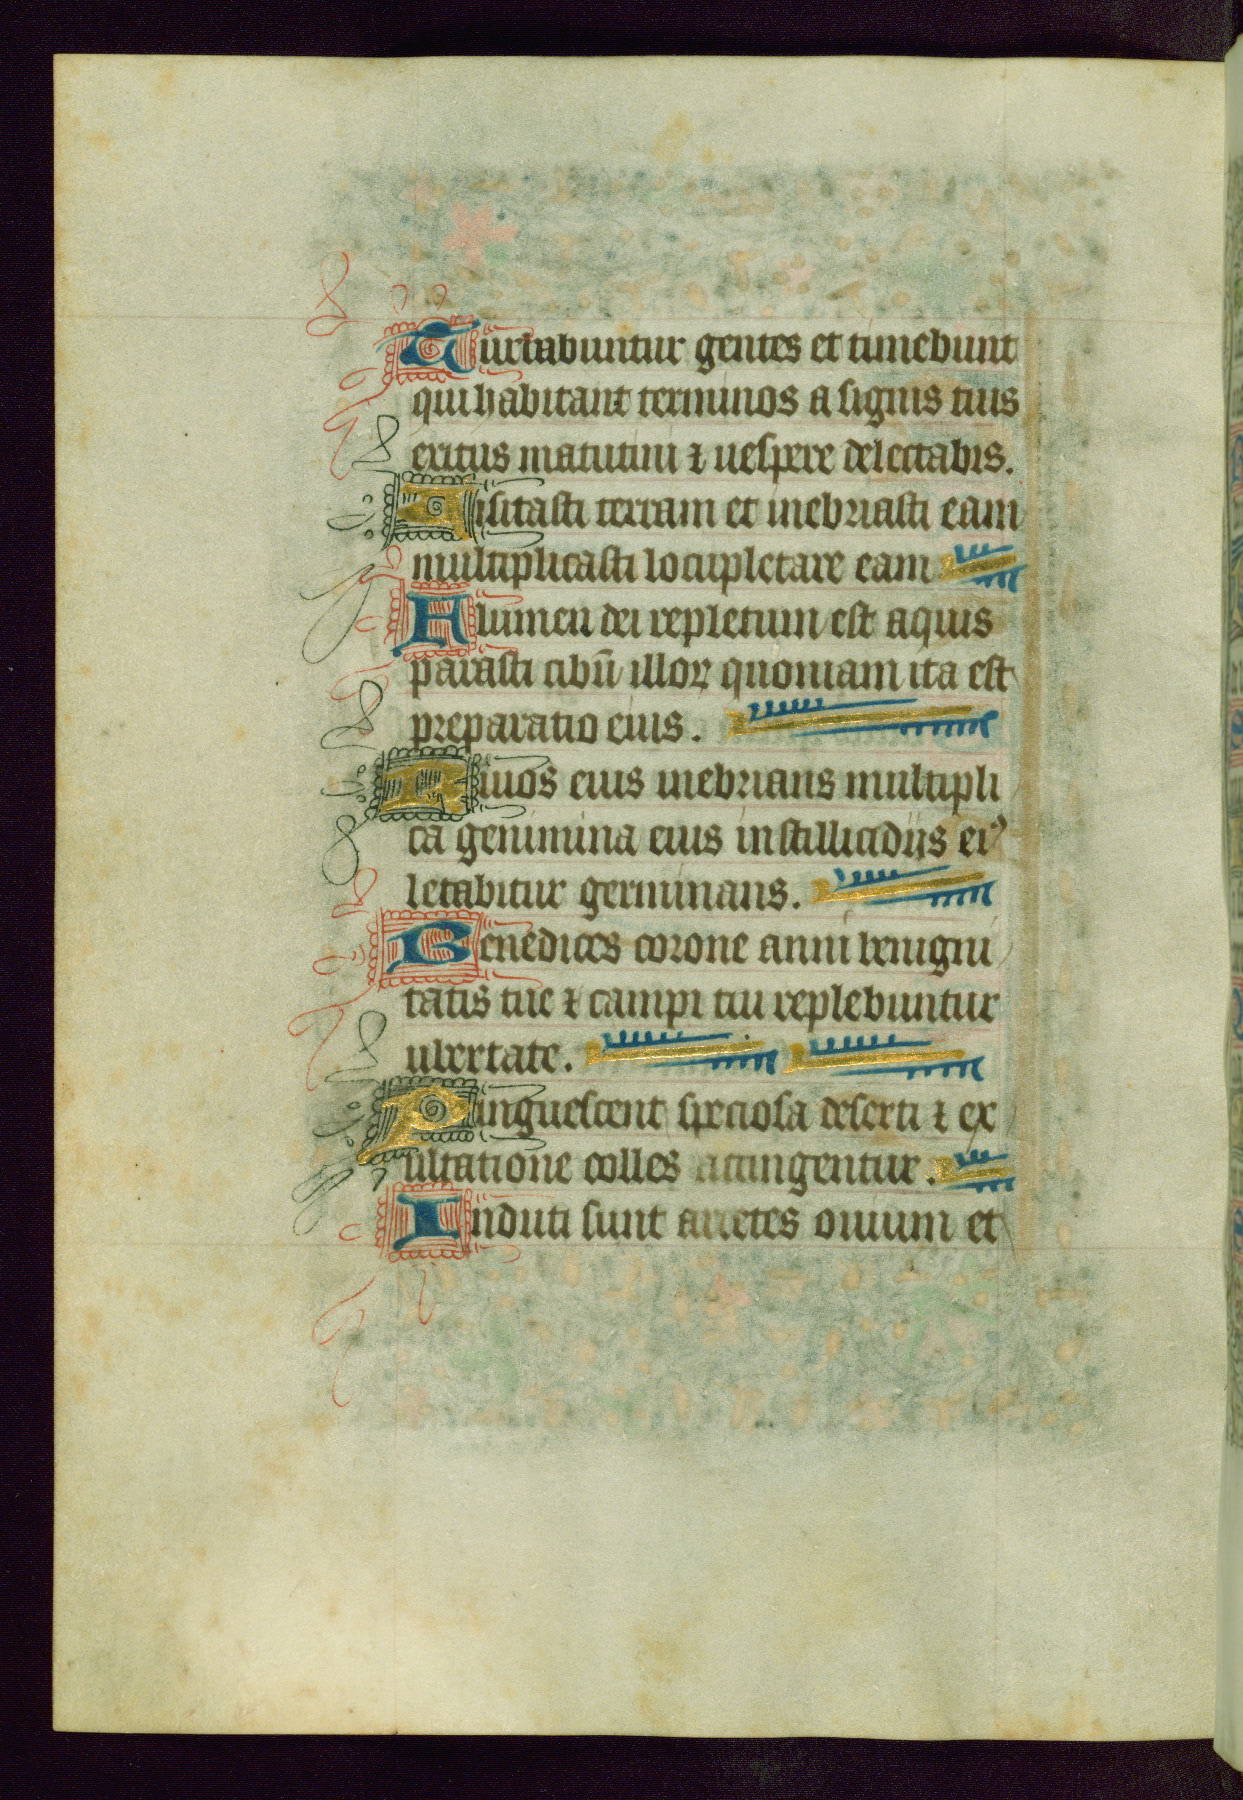 Turbabuntur gentes et timebunt
qui habitant terminos a signis tuis
exitus matutini ⁊ uespere delectabis.
Uisitasti terram et inebriasti eam
multiplicasti locupletare eam
Flumen dei repletum est aquis
parasti cibū illoꝝ quoniam ita est
preparatio eius.
Riuos eius inebrians multipli
ca genimina eius in stillicidijs eiꝰ
letabitur germinans.
Benedices corone anni benigni
tatis tue ⁊ campi tui replebuntur
ubertate.
Pinguescent speciosa deserti ⁊ ex
ultatione colles accingentur.
Induti sunt arietes ouium et